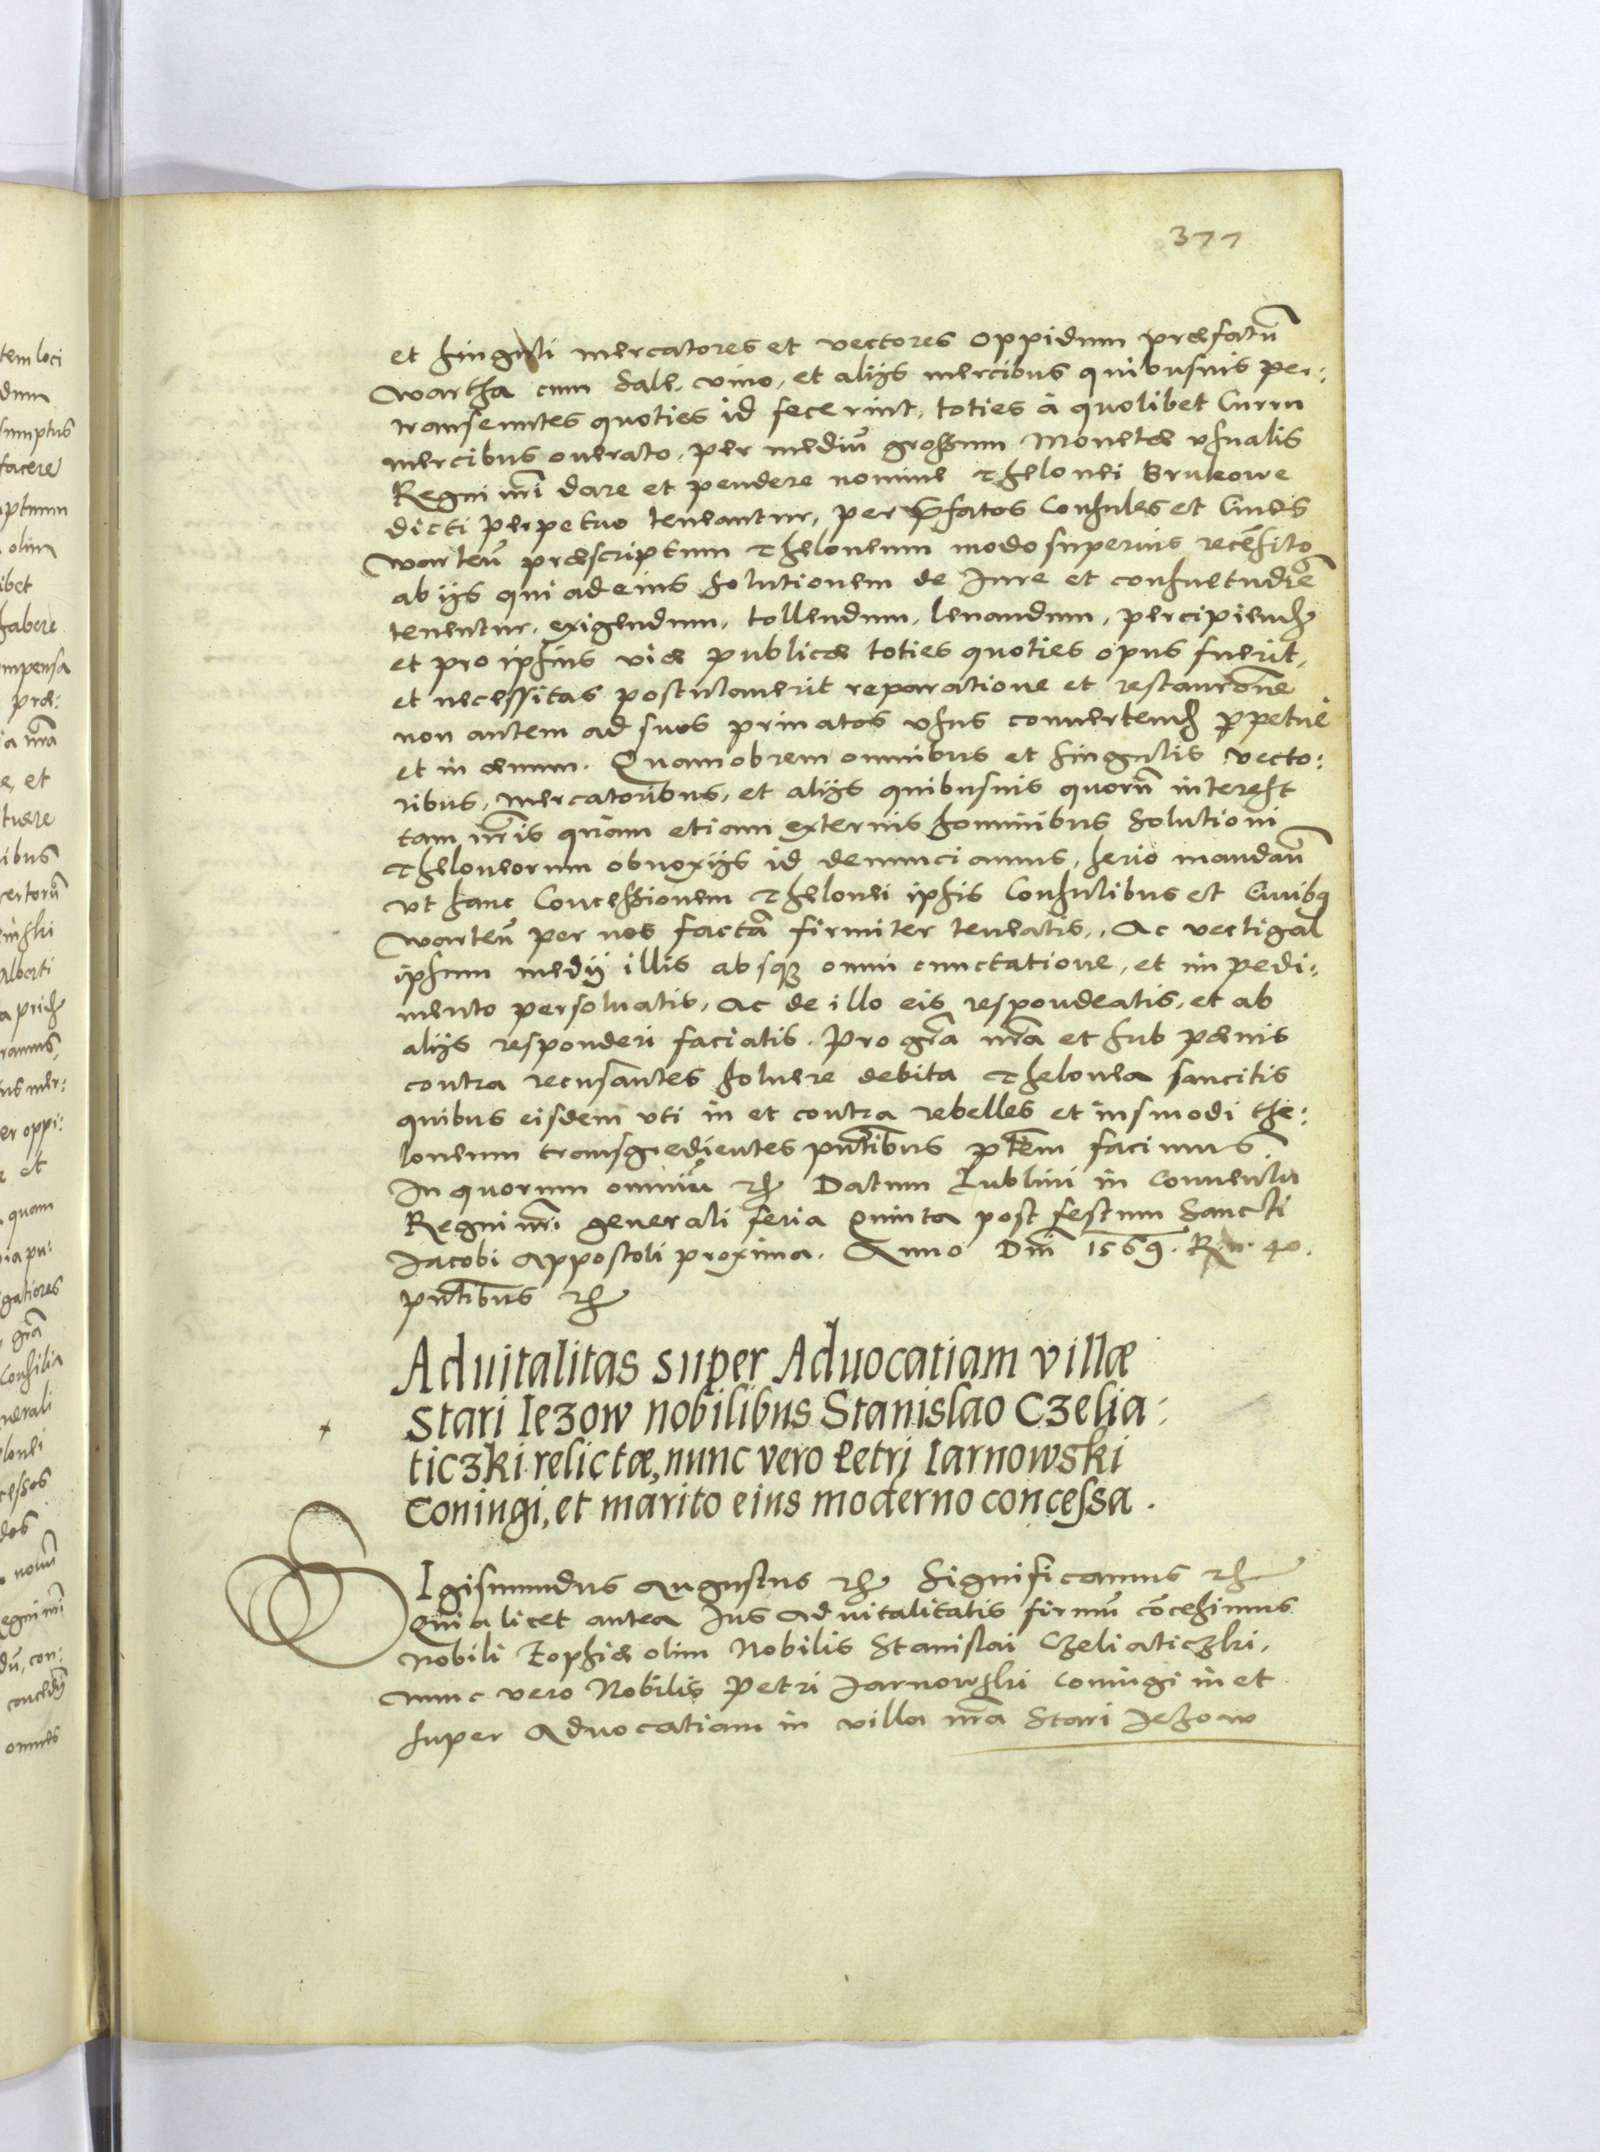 377
et singuli mercatores et vectores oppidum præfatū
wartha cum Sale, vino, et alijs mercibus quibusuis per:
transeuntes quoties id fecerint, toties à quolibet Curru
mercibus onerato, per mediū grossum Monetæ vsualis
Regni nr̄i dare et pendere nomine Thelonei Brukowe
dicti perpetuo teneantur, per p̄fatos Consules et Ciues
warteñ præscriptum Theloneum modo superius recēsito
ab ijs qui ad eius solutionem de Iure et consuetudīe
tenentur, exigendum, tollendum, leuandum, percipiend
et pro ipsius viæ publicæ toties quoties opus fuerit,
et necessitas postulauerit reparatione et restaurōne
non autem ad suos priuatos vsus conuertend ꝑpetue
et in æuum. Quamobrem omnibus et singulis vecto:
ribus, mercatoribus, et alijs quibusuis quorū interest
tam nr̄is quàm etiam externis hominibus Solutioni
Theloneorum obnoxijs id denunciamus, serio mandañ
vt hanc Concessionem Thelonei ipsis Consulibus et Ciuibꝙ
warteñ per nos factā firmiter teneatis, Ac vectigal
ipsum medij illis absqꝫ omni cunctatione, et impedi:
mento persoluatis, Ac de illo eis respondeatis, et ab
alijs responderi faciatis. Pro gr̄a nr̄a et sub pænis
contra recusantes soluere debita Thelonea sancitis
quibus eisdem vti in et contra rebelles et insmodi the:
loneum transgredientes pn̄tibus ptēm facimus.
In quorum omniū rꝫ Datum Lublini in Conuentu
Regni nr̄i generali feria Quinta post festum Sancti
Iacobi Appostoli proxima. Anno Dnī 1569. R. n. 40.
pn̄tibus rꝫ
Aduitalitas super Aduocatiam villæ
Stari Iezow nobilibus Stanislao Czelia:
ticzki relictæ, nunc vero Petri Iarnowski
Coniugi, et marito eius moderno concessa.
SIgismundus Augustus rꝫ Significamus rꝫ
Quia licet antea Ius aduitalitatis firmū cōcessimus
Nobili Zophiæ olim Nobilis Stanislai Czeliaticzki,
nunc vero Nobilis Petri Iarnowski Coniugi in et
super Aduocatiam in villa nr̄a Stari Iezow